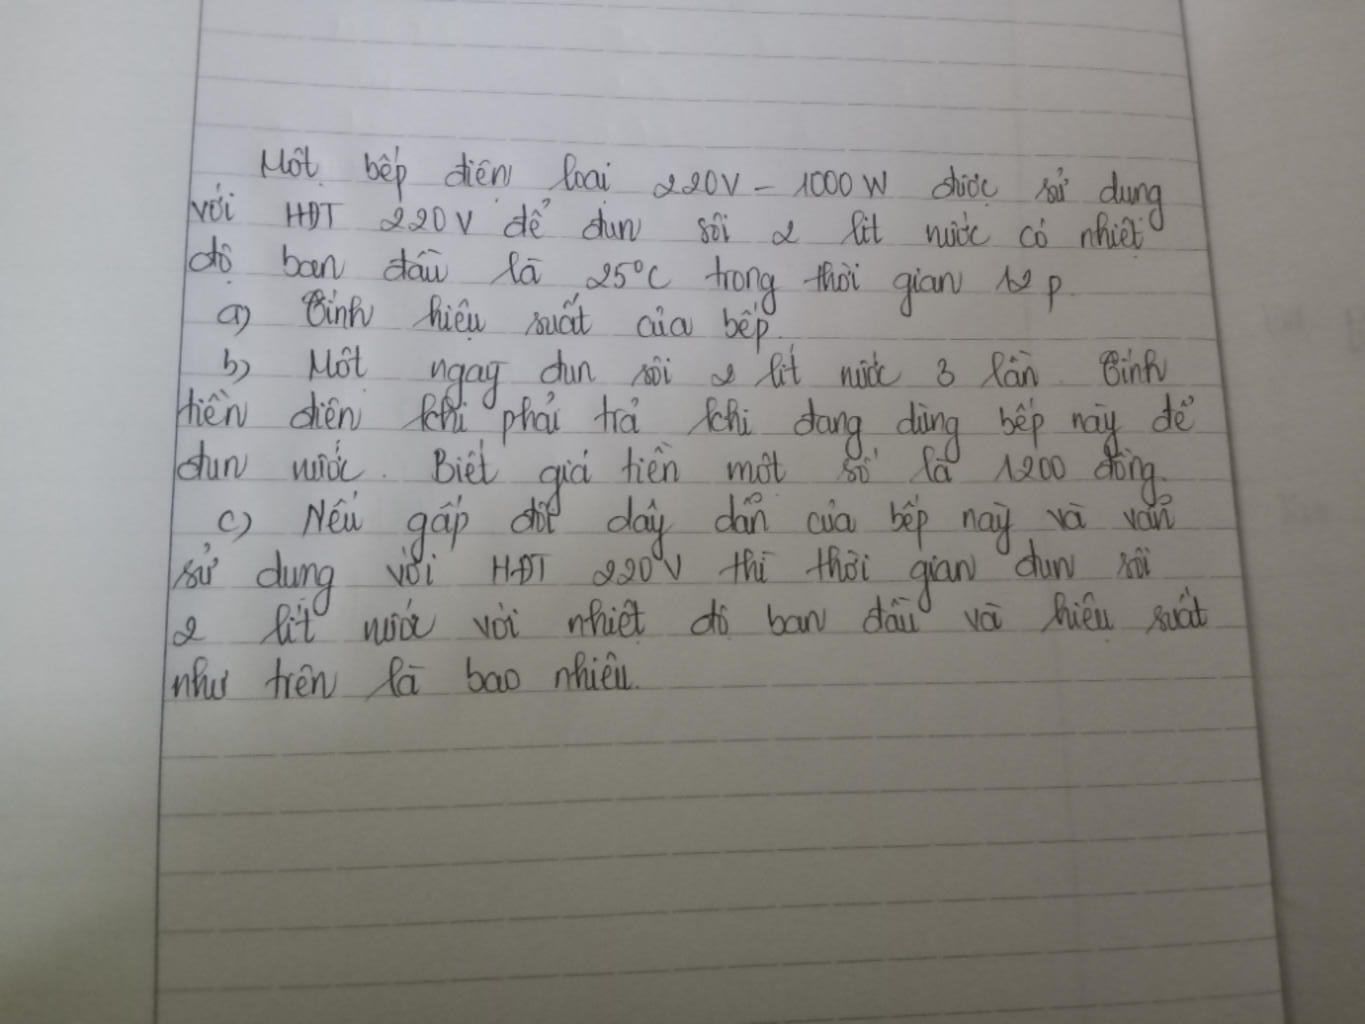 Một bếp điện loại 220V - 1000W được sử dụng
với HĐT 220V để đun sôi 2 lít nước có nhiệt
độ ban đầu là 25°C trong thời gian 12 p
a) Tính hiệu suất của bếp.
b) Một ngay đun sôi 2 lít nước 3 lần. Tính
tiền điện khi phải trả khi đang dùng bếp này để
đun nước. Biết giá tiền một số là 1200 đồng.
c) Nếu gấp đôi dây dẫn của bếp này và vẫn
sử dụng với HĐT 220V thì thời gian đun sôi
2 lít nước với nhiệt độ ban đầu và hiệu suất
như trên là bao nhiêu.